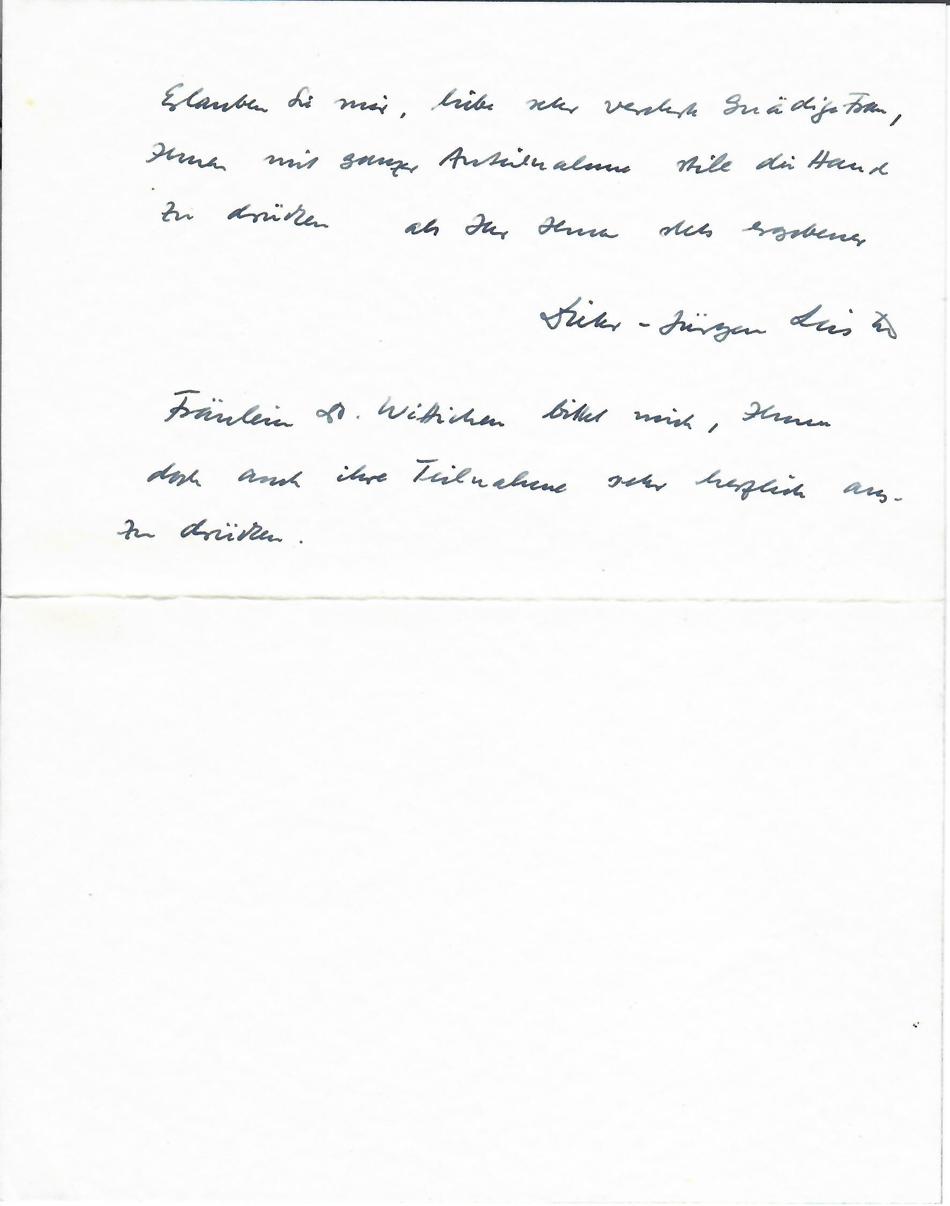 Erlauben Sie mir, liebe sehr verehrte Gnädige Frau,
Ihnen mit ganzer Anteilnahme still die Hand
zu drücken als Ihr Ihnen stets ergebener
Dieter-Jürgen Leister
Fräulein Dr. Wittichen bittet mich, Ihnen
doch auch ihre Teilnahme sehr herzlich aus-
zu drücken.